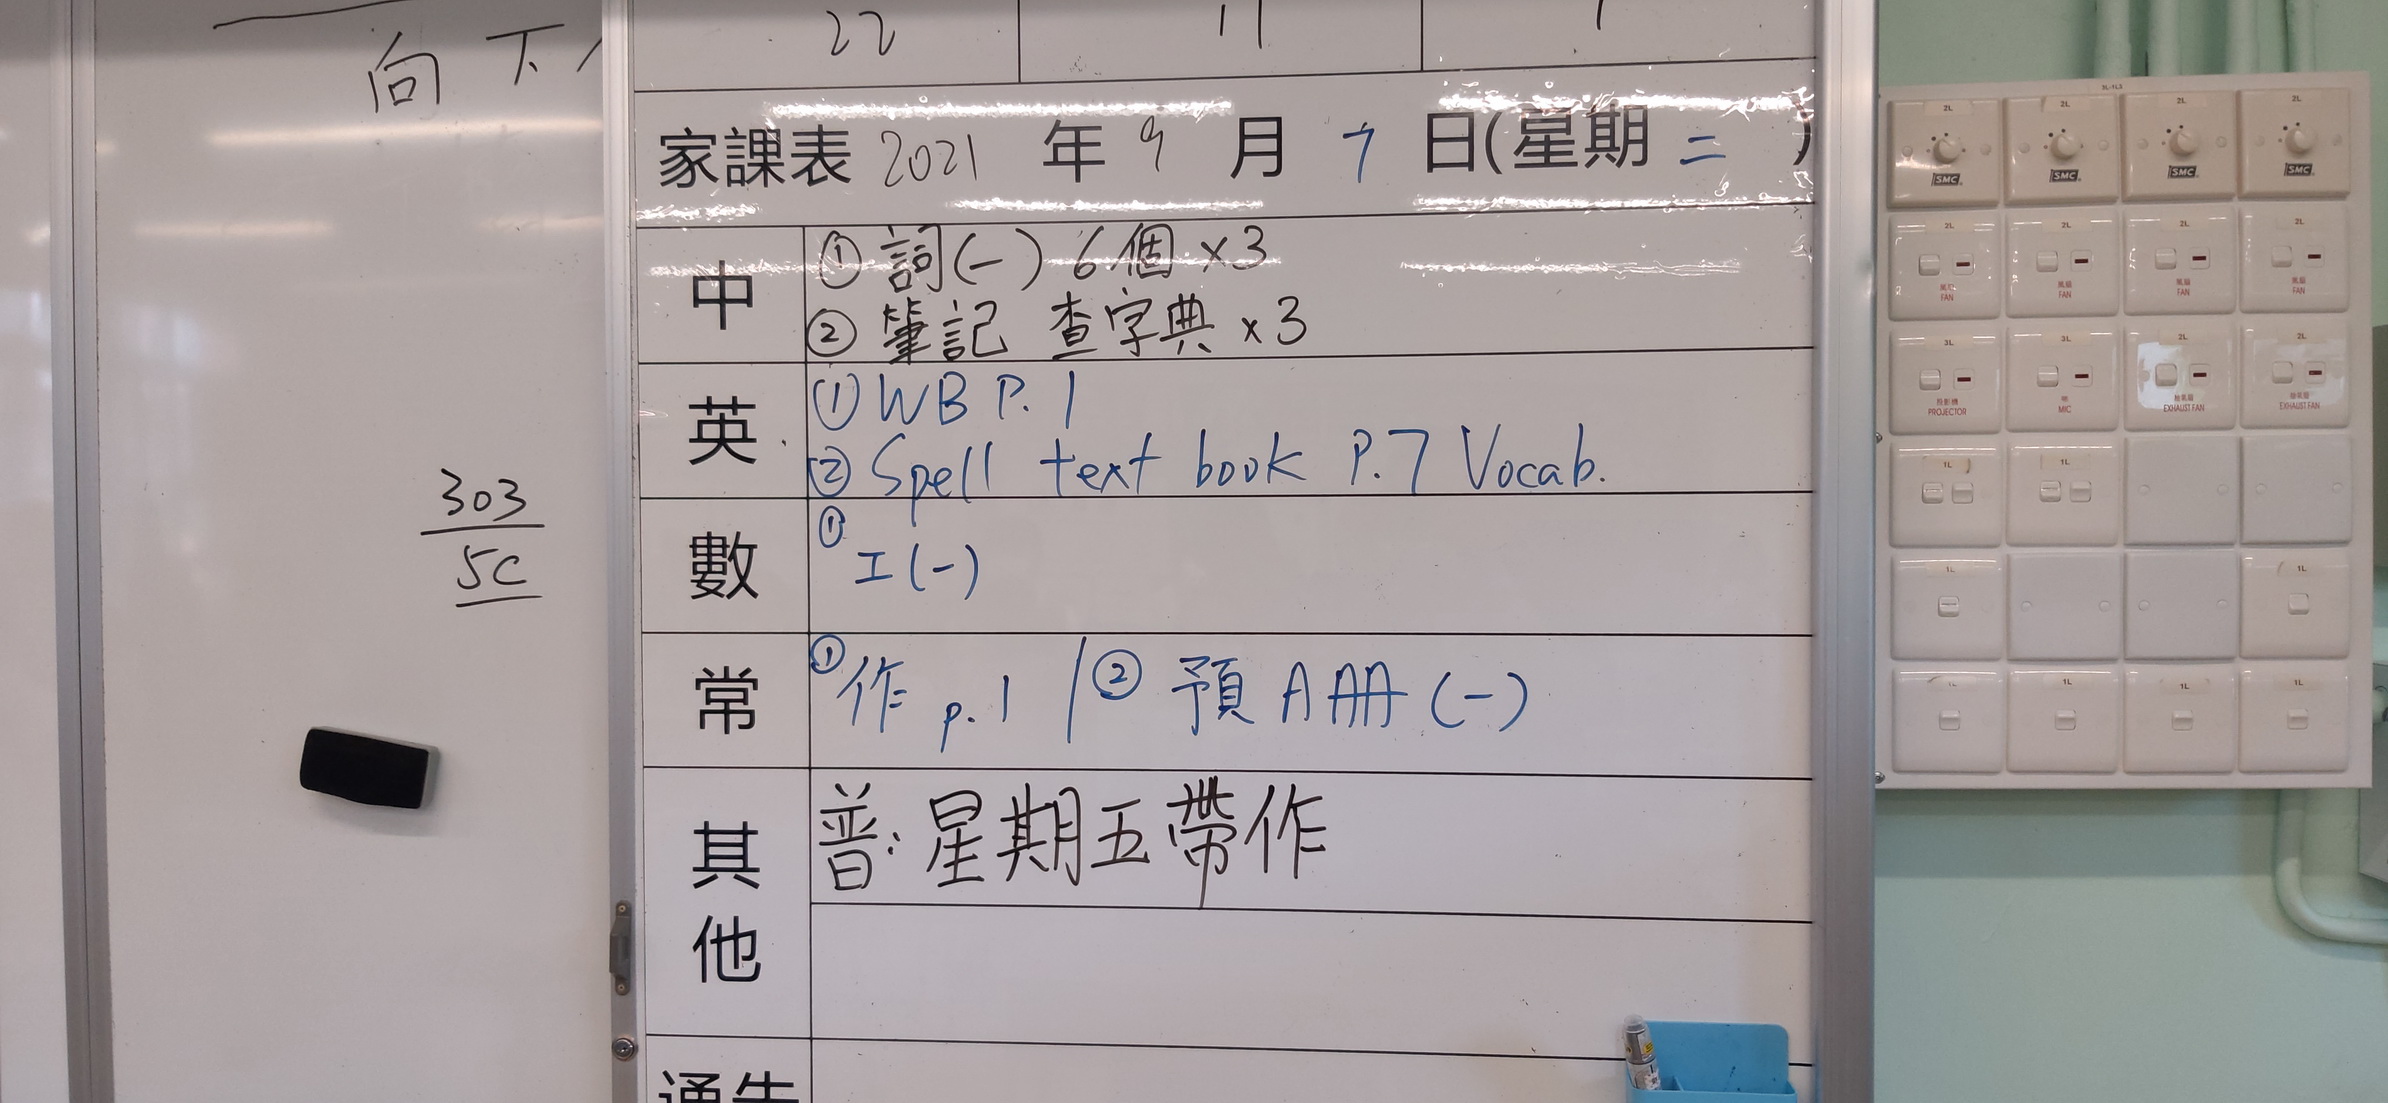 向下
303
5C
22
11
家課表 2021 年 9 月 7 日(星期 二 )
中
① 詞(一) 6個 x3
② 筆記 查字典 x3
英
① WB P. 1
② Spell text book P.7 Vocab.
數
① 工(一)
常
① 作 p.1 / ② 預 A冊 (一)
其他
普: 星期五帶作
通告
3L-1L3
2L
2L
2L
2L
SMC
SMC
SMC
SMC
2L
2L
2L
2L
風扇
風扇
風扇
風扇
FAN
FAN
FAN
FAN
3L
3L
2L
2L
投影機
咪
抽氣扇
抽氣扇
PROJECTOR
MIC
EXHAUST FAN
EXHAUST FAN
1L
1L
1L
1L
1L
1L
1L
1L